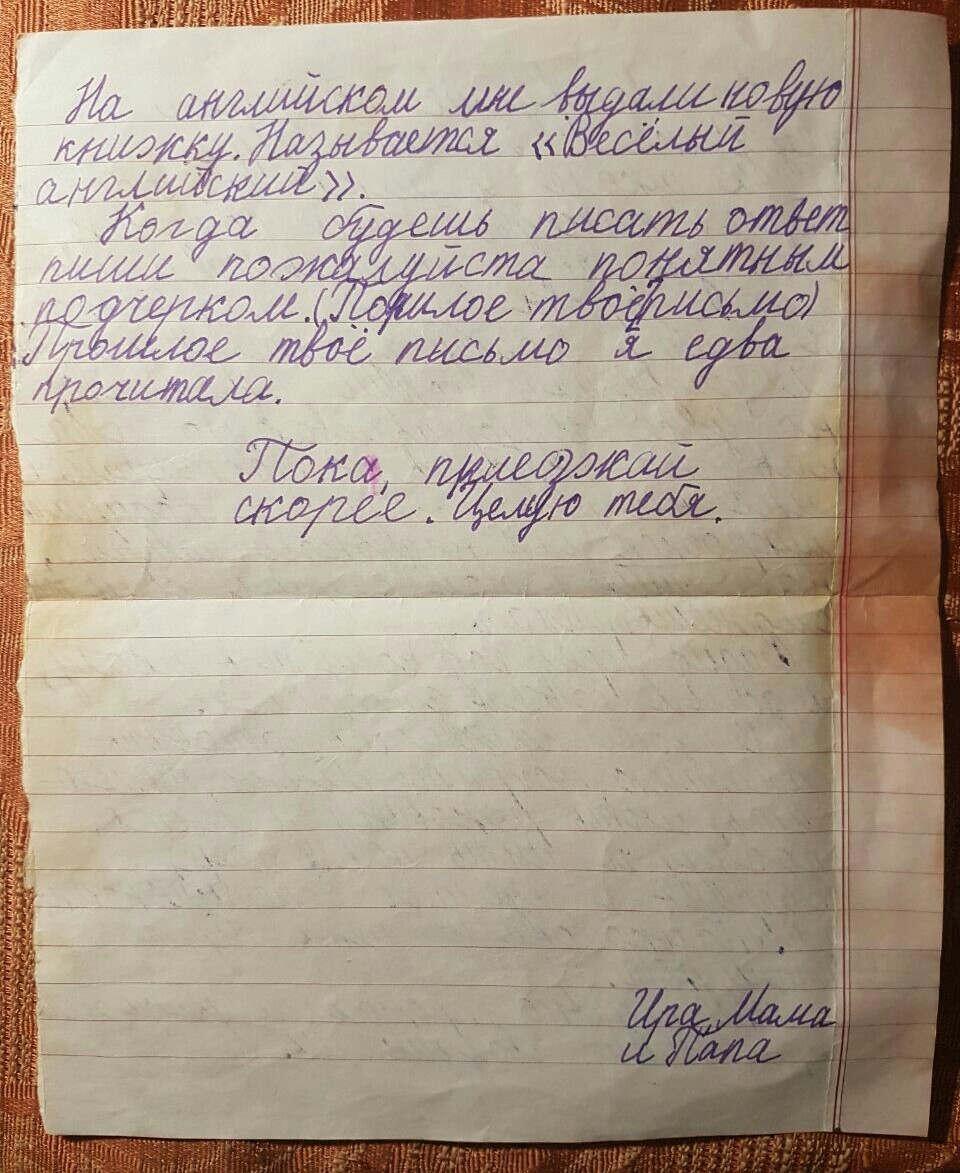 На английском мне выдали новую
книжку. Называется «Весёлый
английский».
Когда будешь писать ответ
пиши пожалуйста понятным
подчерком. (Пошлое твоё письмо)
Прошлое твоё письмо я едва
прочитала.
Пока, приезжай
скорее. Целую тебя.
Ира, Мама
и Папа